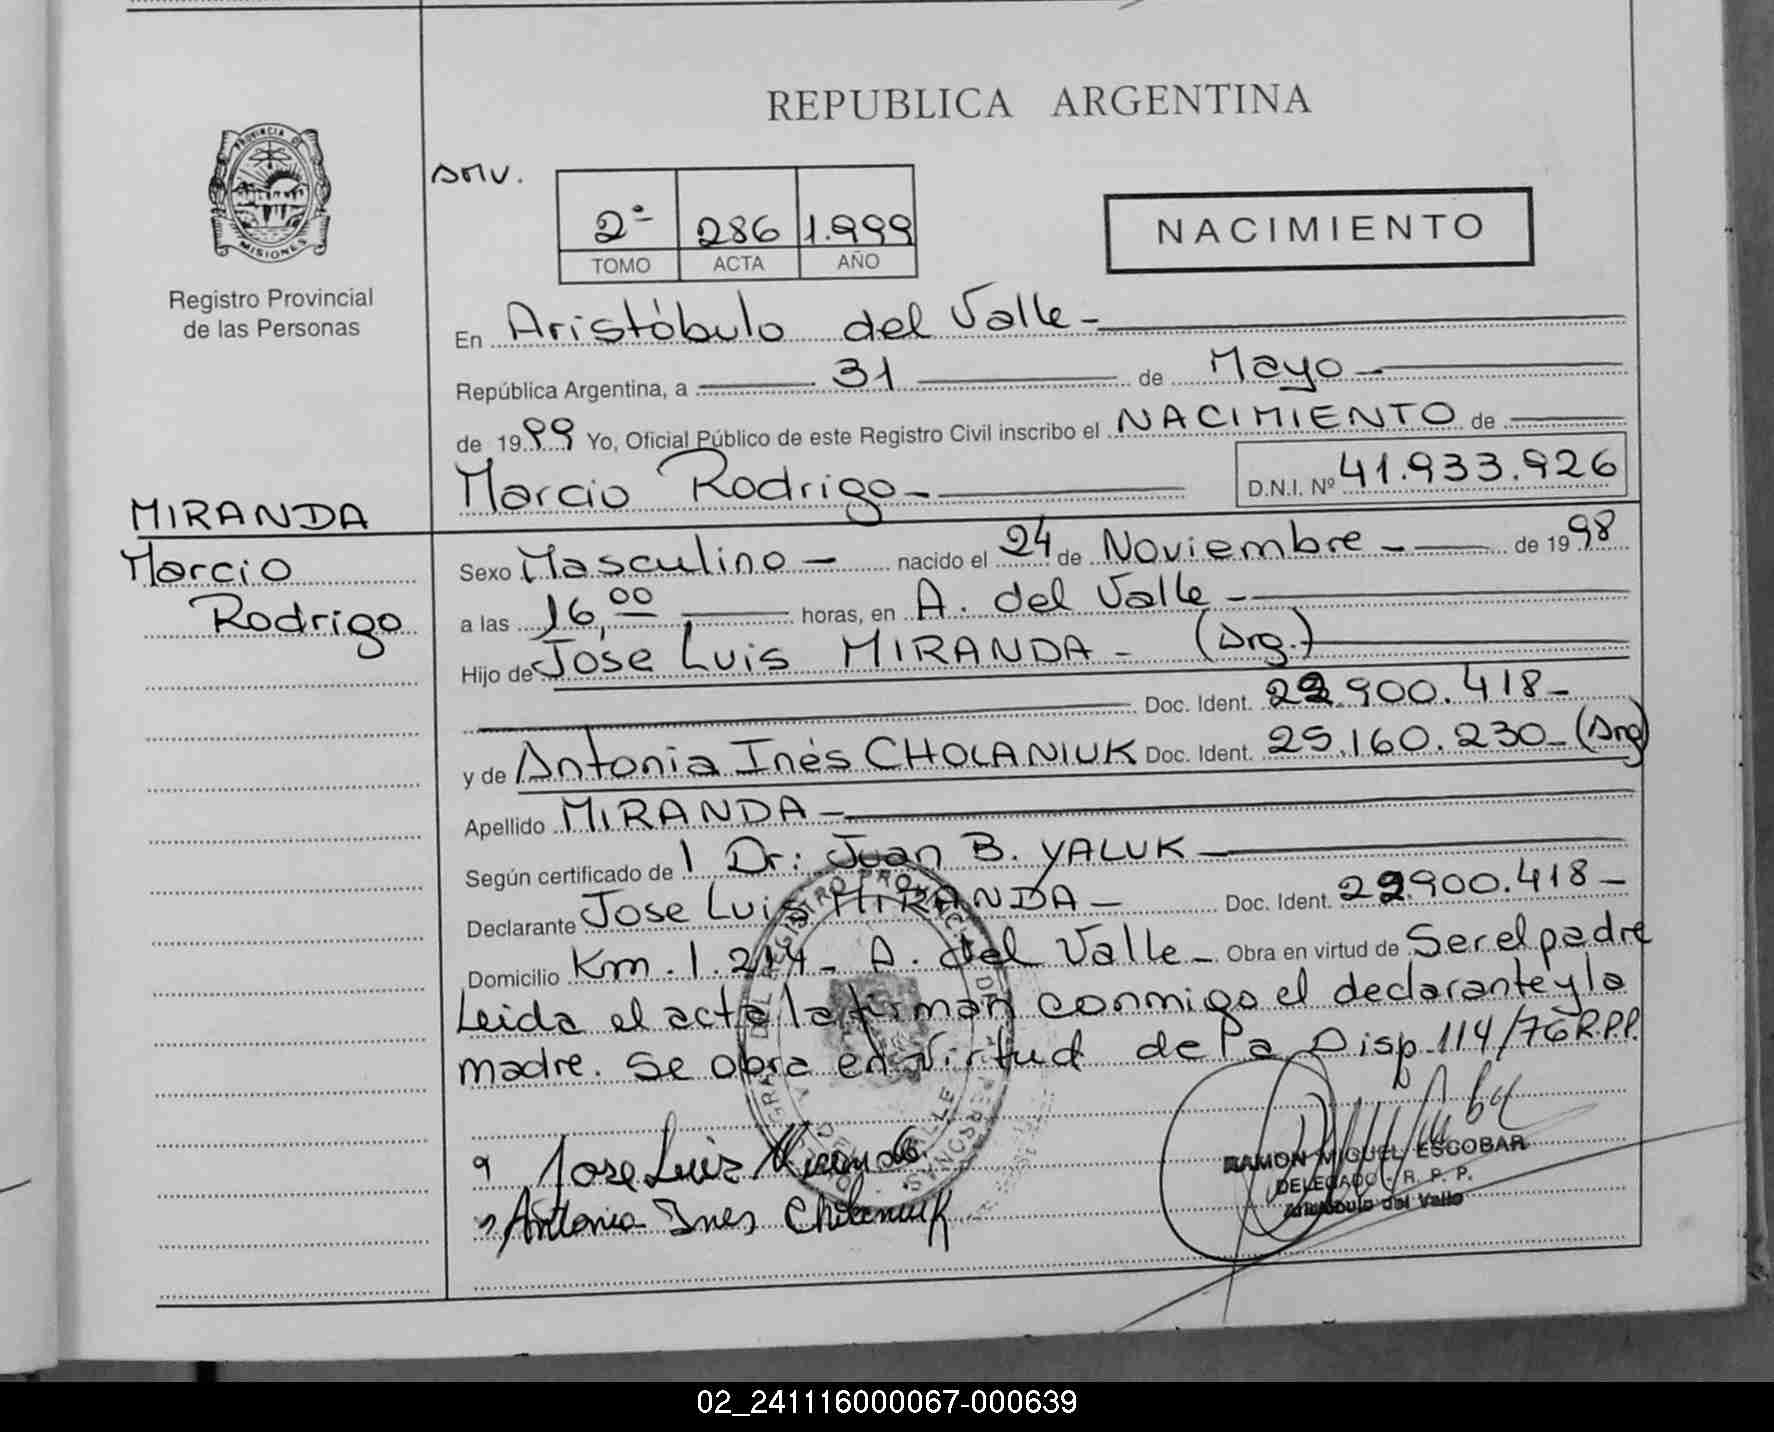 REPUBLICA ARGENTINA
PROVINCIA DE
MISIONES
Registro Provincial
de las Personas
AMV.
2º 286 1.999
TOMO ACTA AÑO
NACIMIENTO
En Aristóbulo del Valle-
República Argentina, a 31 de Mayo-
de 1999 Yo, Oficial Público de este Registro Civil inscribo el NACIMIENTO de
Marcio Rodrigo- D.N.I. Nº 41.933.926
MIRANDA
Marcio
Rodrigo
Sexo Masculino- nacido el 24 de Noviembre- de 1998
a las 16,00 horas, en A. del Valle-
Hijo de Jose Luis MIRANDA- (Arg.)
Doc. Ident. 22.900.418-
y de Antonia Inés CHOLANIUK Doc. Ident. 25.160.230-(Arg)
Apellido MIRANDA-
Según certificado de 1 Dr: Juan B. YALUK-
Declarante Jose Luis MIRANDA- Doc. Ident. 22.900.418-
Domicilio Km. 1.214- A. del Valle- Obra en virtud de Ser el padre
Leida el acta la firman conmigo el declarante y la
madre. Se obra en virtud de la Disp. 114/76 R.P.P.
Jose Luis Miranda
Antonia Ines Cholaniuk
RAMON MIGUEL ESCOBAR
DELEGADO - R. P. P.
Aristóbulo del Valle
02_241116000067-000639